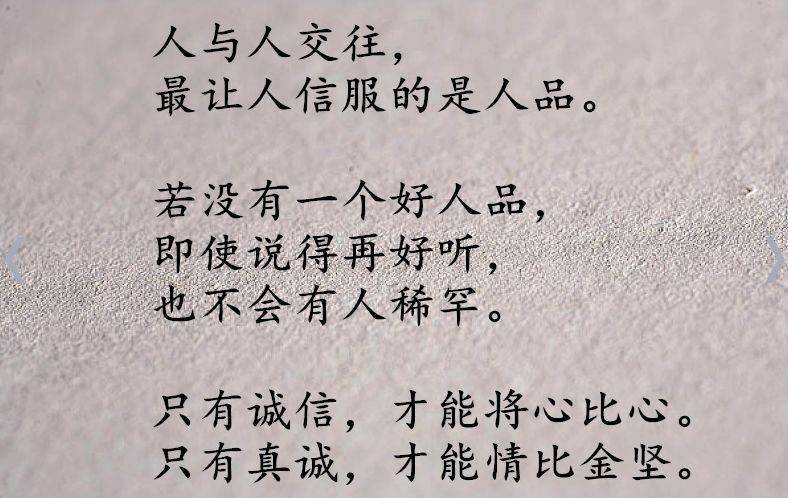 人与人交往，
最让人信服的是人品。
若没有一个好人品，
即使说得再好听，
也不会有人稀罕。
只有诚信，才能将心比心。
只有真诚，才能情比金坚。